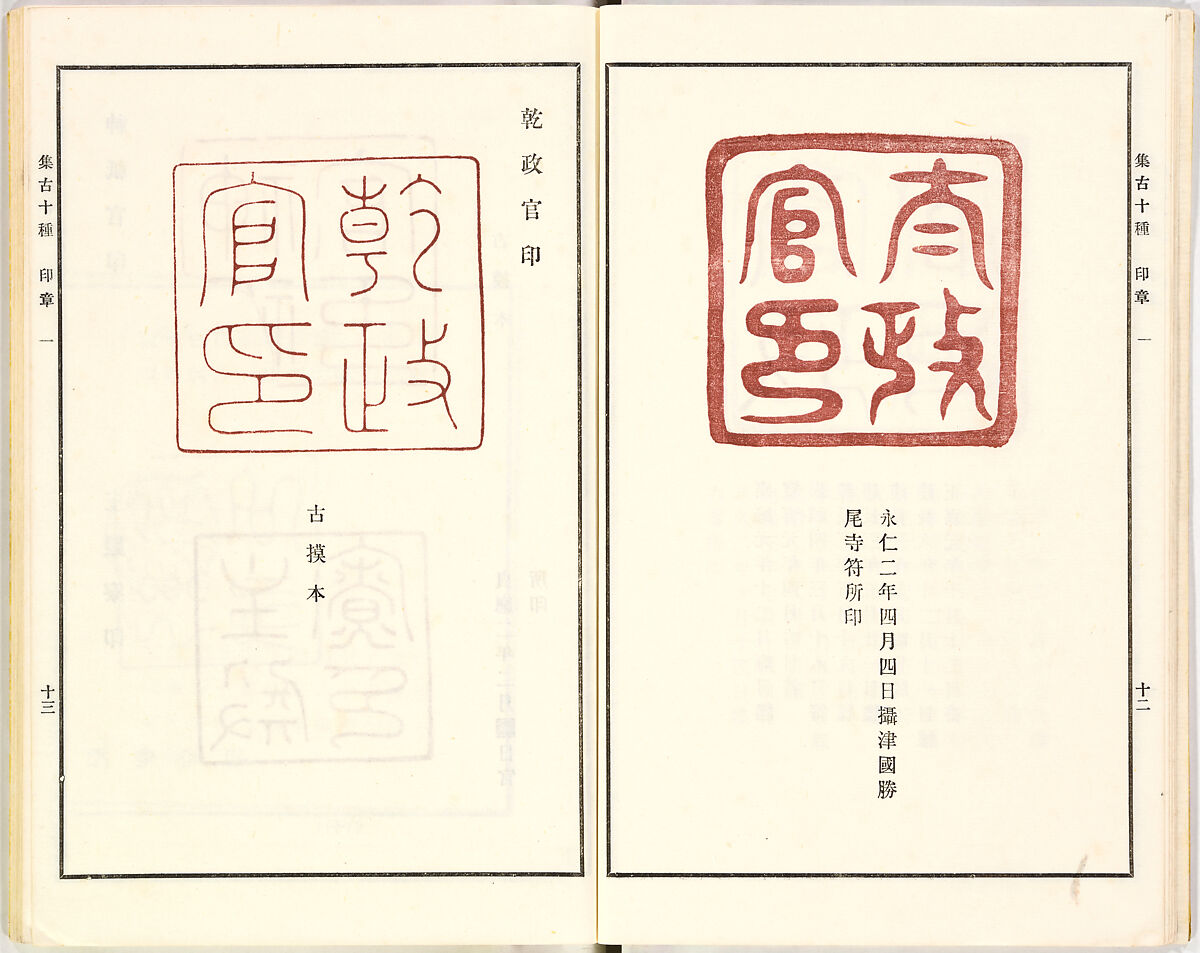 集古十種 印章 一
十二
太政
官印
永仁二年四月四日攝津國勝
尾寺符所印
乾政官印
乾政
官印
古摸本
集古十種 印章 一
十三